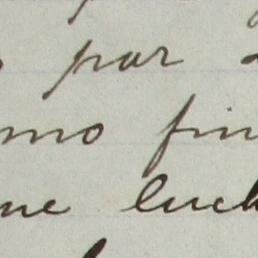 par
mo fin
ne luch